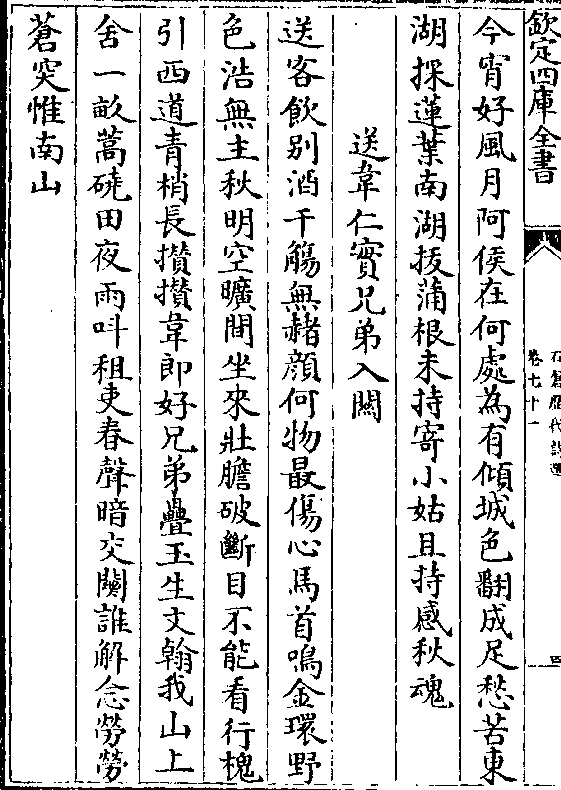 欽定四庫全書
石倉歷代詩選
卷七十一
四
今宵好風月阿侯在何處為有傾城色翻成足愁苦東
湖採蓮葉南湖拔蒲根未持寄小姑且持感秋魂
送韋仁實兄弟入關
送客飲别酒千觴無赭顔何物最傷心馬首鳴金環野
色浩無主秋明空曠間坐來壯膽破斷目不能看行槐
引西道青梢長攢攢韋郎好兄弟疊玉生文翰我山上
舍一畝蒿磽田夜雨呌租吏春聲暗交關誰解念勞勞
蒼突惟南山